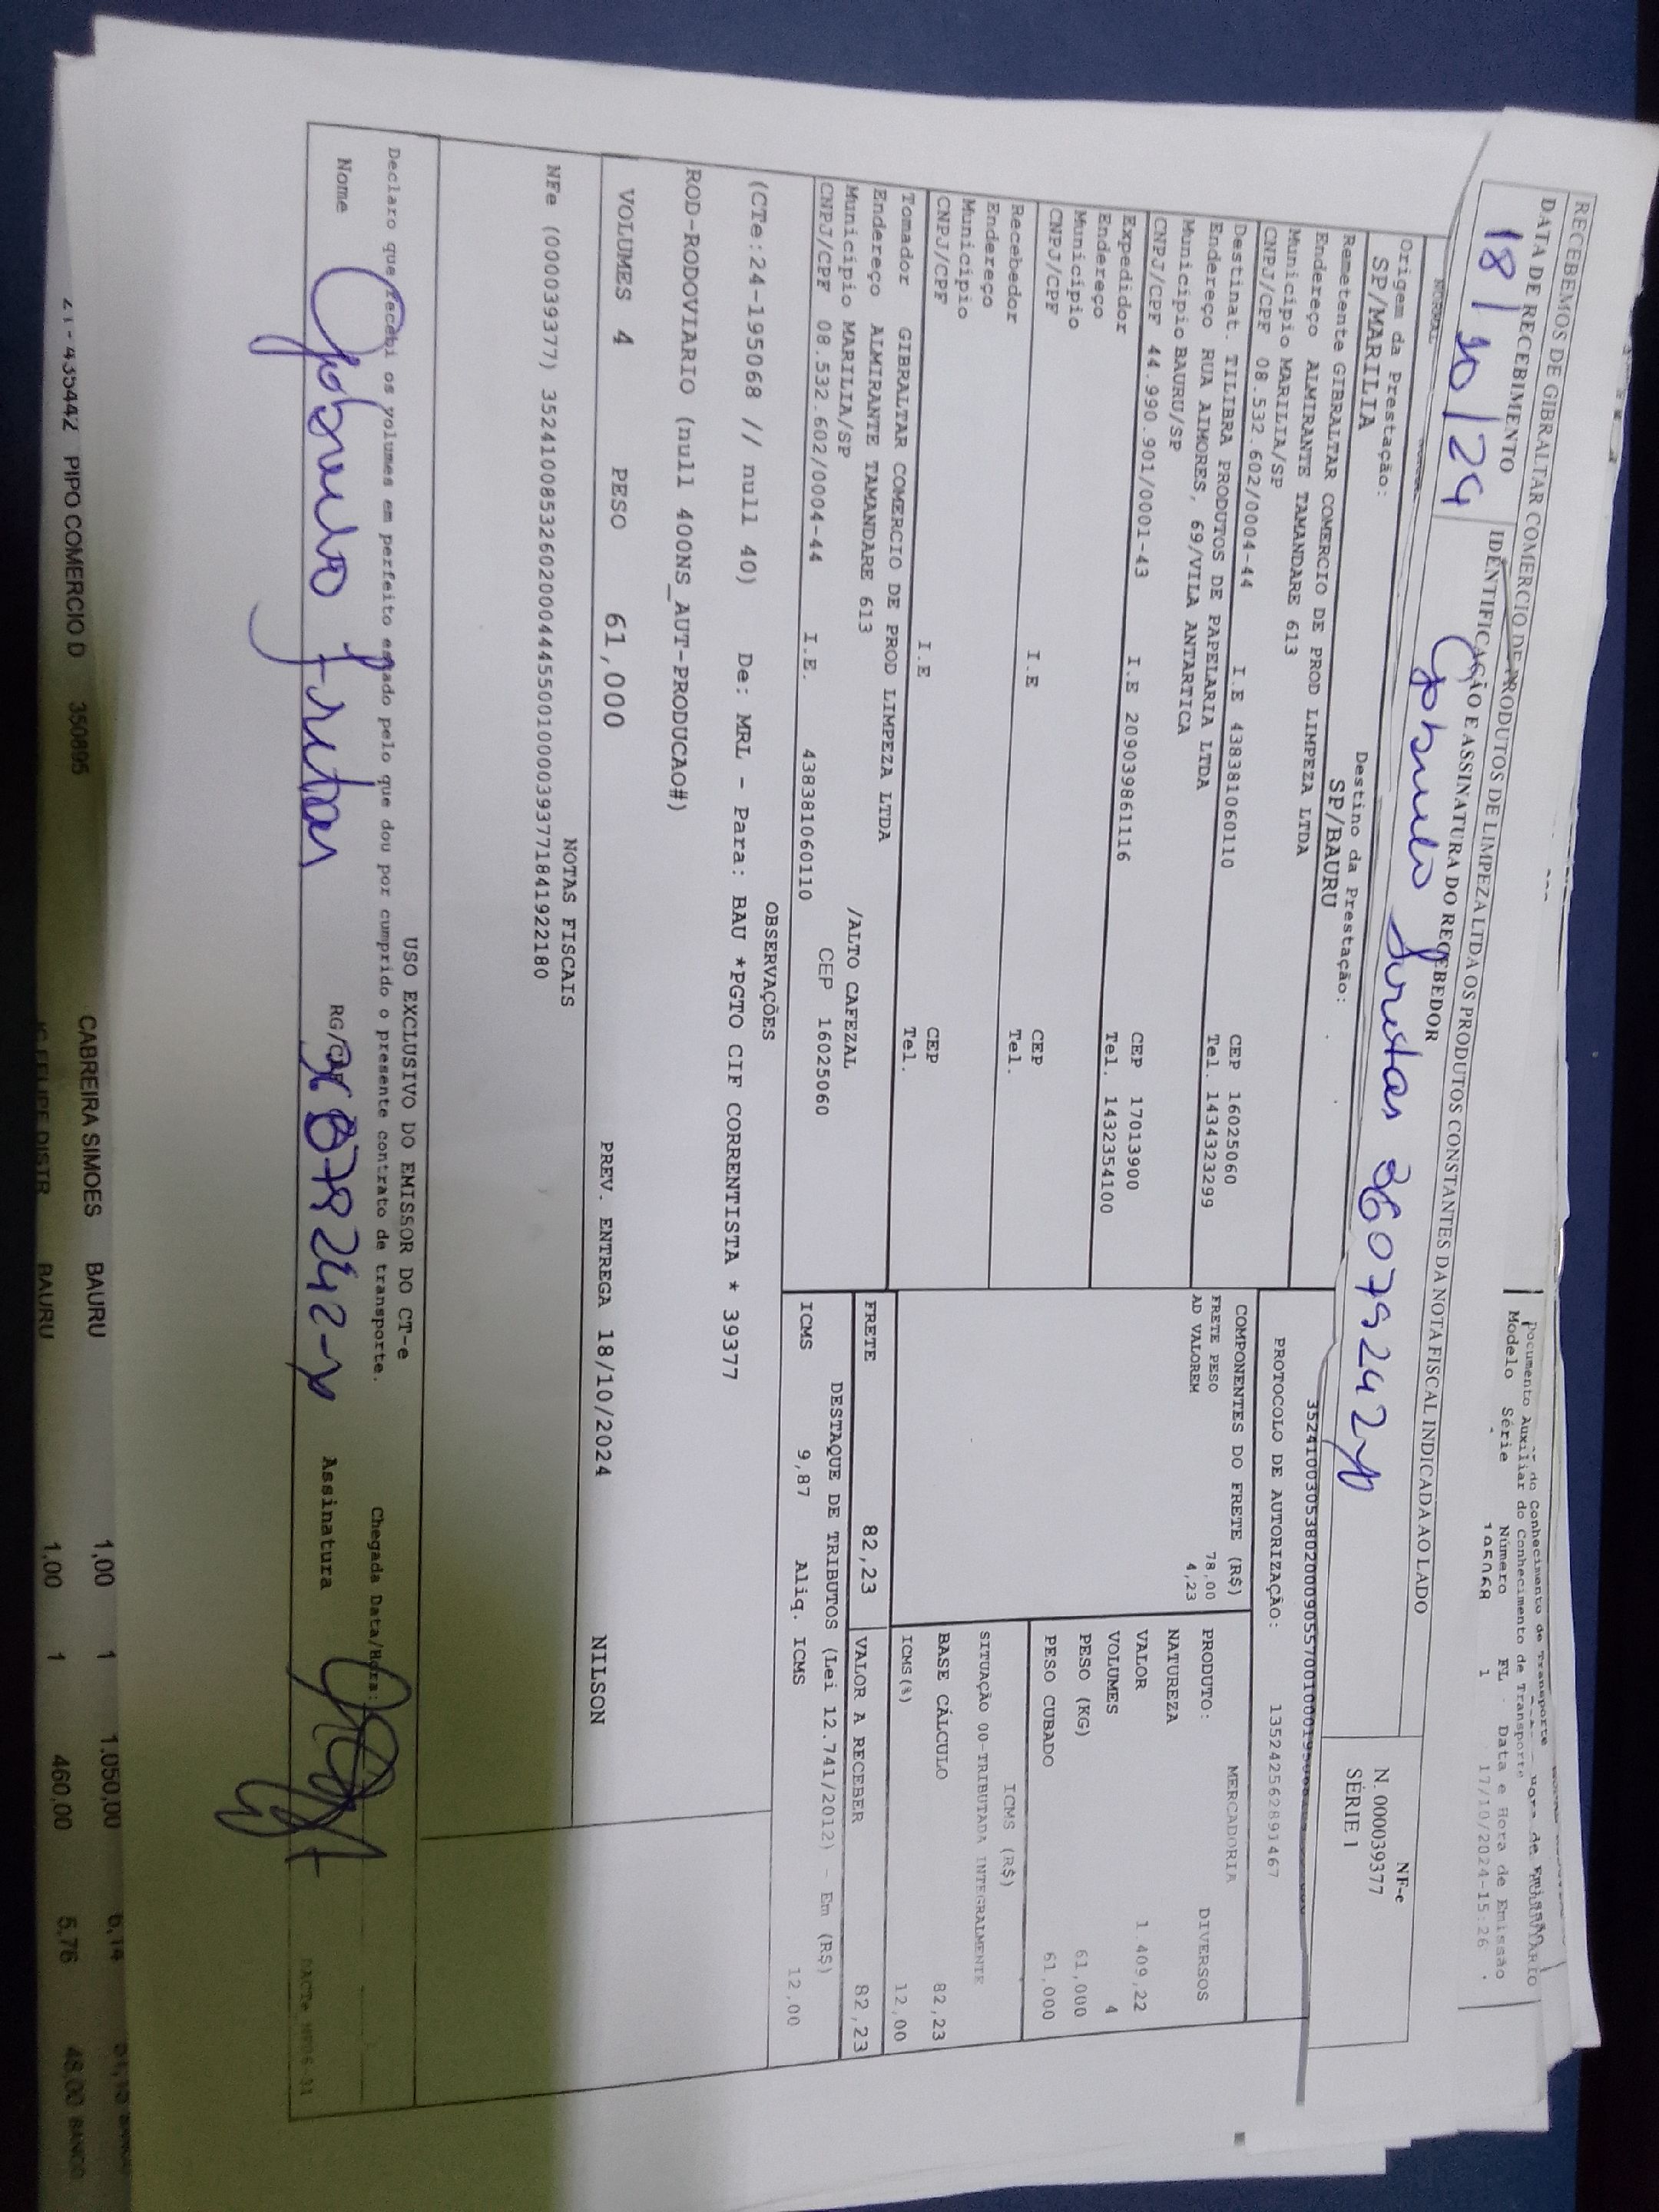 RECEBEMOS DE GIBRALTAR COMERCIO DE PRODUTOS DE LIMPEZA LTDA OS PRODUTOS CONSTANTES DA NOTA FISCAL INDICADA AO LADO
DATA DE RECEBIMENTO
IDENTIFICAÇÃO E ASSINATURA DO RECEBEDOR
18/10/24
36079242-
NF-e
N. 000039377
SÉRIE 1
Documento Auxiliar do Conhecimento de Transporte
Modelo Série Número FL Data e Hora de Emissão
195068 1 17/10/2024-15:26
NORMAL
Origem da Prestação:
SP/MARILIA
Destino da Prestação:
SP/BAURU
Remetente GIBRALTAR COMERCIO DE PROD LIMPEZA LTDA
Endereço ALMIRANTE TAMANDARE 613
Município MARILIA/SP CEP 16025060
CNPJ/CPF 08.532.602/0004-44 I.E 438381060110 Tel. 1434323299
Destinat. TILIBRA PRODUTOS DE PAPELARIA LTDA
Endereço RUA AIMORES, 69/VILA ANTARTICA
Município BAURU/SP CEP 17013900
CNPJ/CPF 44.990.901/0001-43 I.E 209039861116 Tel. 1432354100
Expedidor
Endereço
Município CEP
CNPJ/CPF I.E Tel.
Recebedor
Endereço
Município CEP
CNPJ/CPF I.E Tel.
Tomador GIBRALTAR COMERCIO DE PROD LIMPEZA LTDA
Endereço ALMIRANTE TAMANDARE 613 /ALTO CAFEZAL
Município MARILIA/SP CEP 16025060
CNPJ/CPF 08.532.602/0004-44 I.E. 438381060110
PROTOCOLO DE AUTORIZAÇÃO: 135242562891467
COMPONENTES DO FRETE (R$)
FRETE PESO 78,00
AD VALOREM 4,23
MERCADORIA
PRODUTO: DIVERSOS
NATUREZA
VALOR 1.409,22
VOLUMES 4
PESO (KG) 61,000
PESO CUBADO 61,000
ICMS (R$)
SITUAÇÃO 00-TRIBUTADA INTEGRALMENTE
BASE CÁLCULO 82,23
ICMS(%) 12,00
FRETE 82,23 VALOR A RECEBER 82,23
DESTAQUE DE TRIBUTOS (Lei 12.741/2012) - Em (R$)
ICMS 9,87 Aliq. ICMS 12,00
OBSERVAÇÕES
(CTe:24-195068 // null 40) De: MRL - Para: BAU *PGTO CIF CORRENTISTA * 39377
ROD-RODOVIARIO (null 400NS_AUT-PRODUCAO#)
VOLUMES 4 PESO 61,000 PREV. ENTREGA 18/10/2024 NILSON
NOTAS FISCAIS
NFe (000039377) 35241008532602000444550010000393771841922180
USO EXCLUSIVO DO EMISSOR DO CT-e
Declaro que recebi os volumes em perfeito estado pelo que dou por cumprido o presente contrato de transporte. Chegada Data/Hora:
Nome RG/CPF Assinatura
435442 PIPO COMERCIO D 350895 CABREIRA SIMOES BAURU 1,00 1 1.050,00 6,14
BAURU 1,00 1 460,00 5,76 48,00